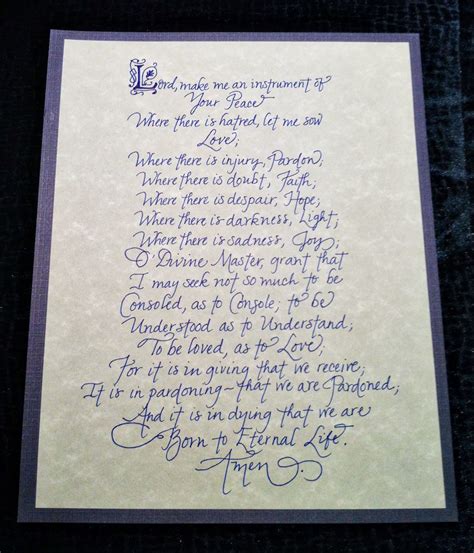 Lord, make me an instrument of
Your Peace
Where there is hatred, let me sow
Love;
Where there is injury, Pardon;
Where there is doubt, Faith;
Where there is despair, Hope;
Where there is darkness, Light;
Where there is sadness, Joy;
O' Divine Master, grant that
I may seek not so much to be
Consoled, as to Console; to be
Understood as to Understand;
To be loved, as to Love;
For it is in giving that we receive;
It is in pardoning~that we are Pardoned;
And it is in dying that we are
Born to Eternal Life.
Amen.